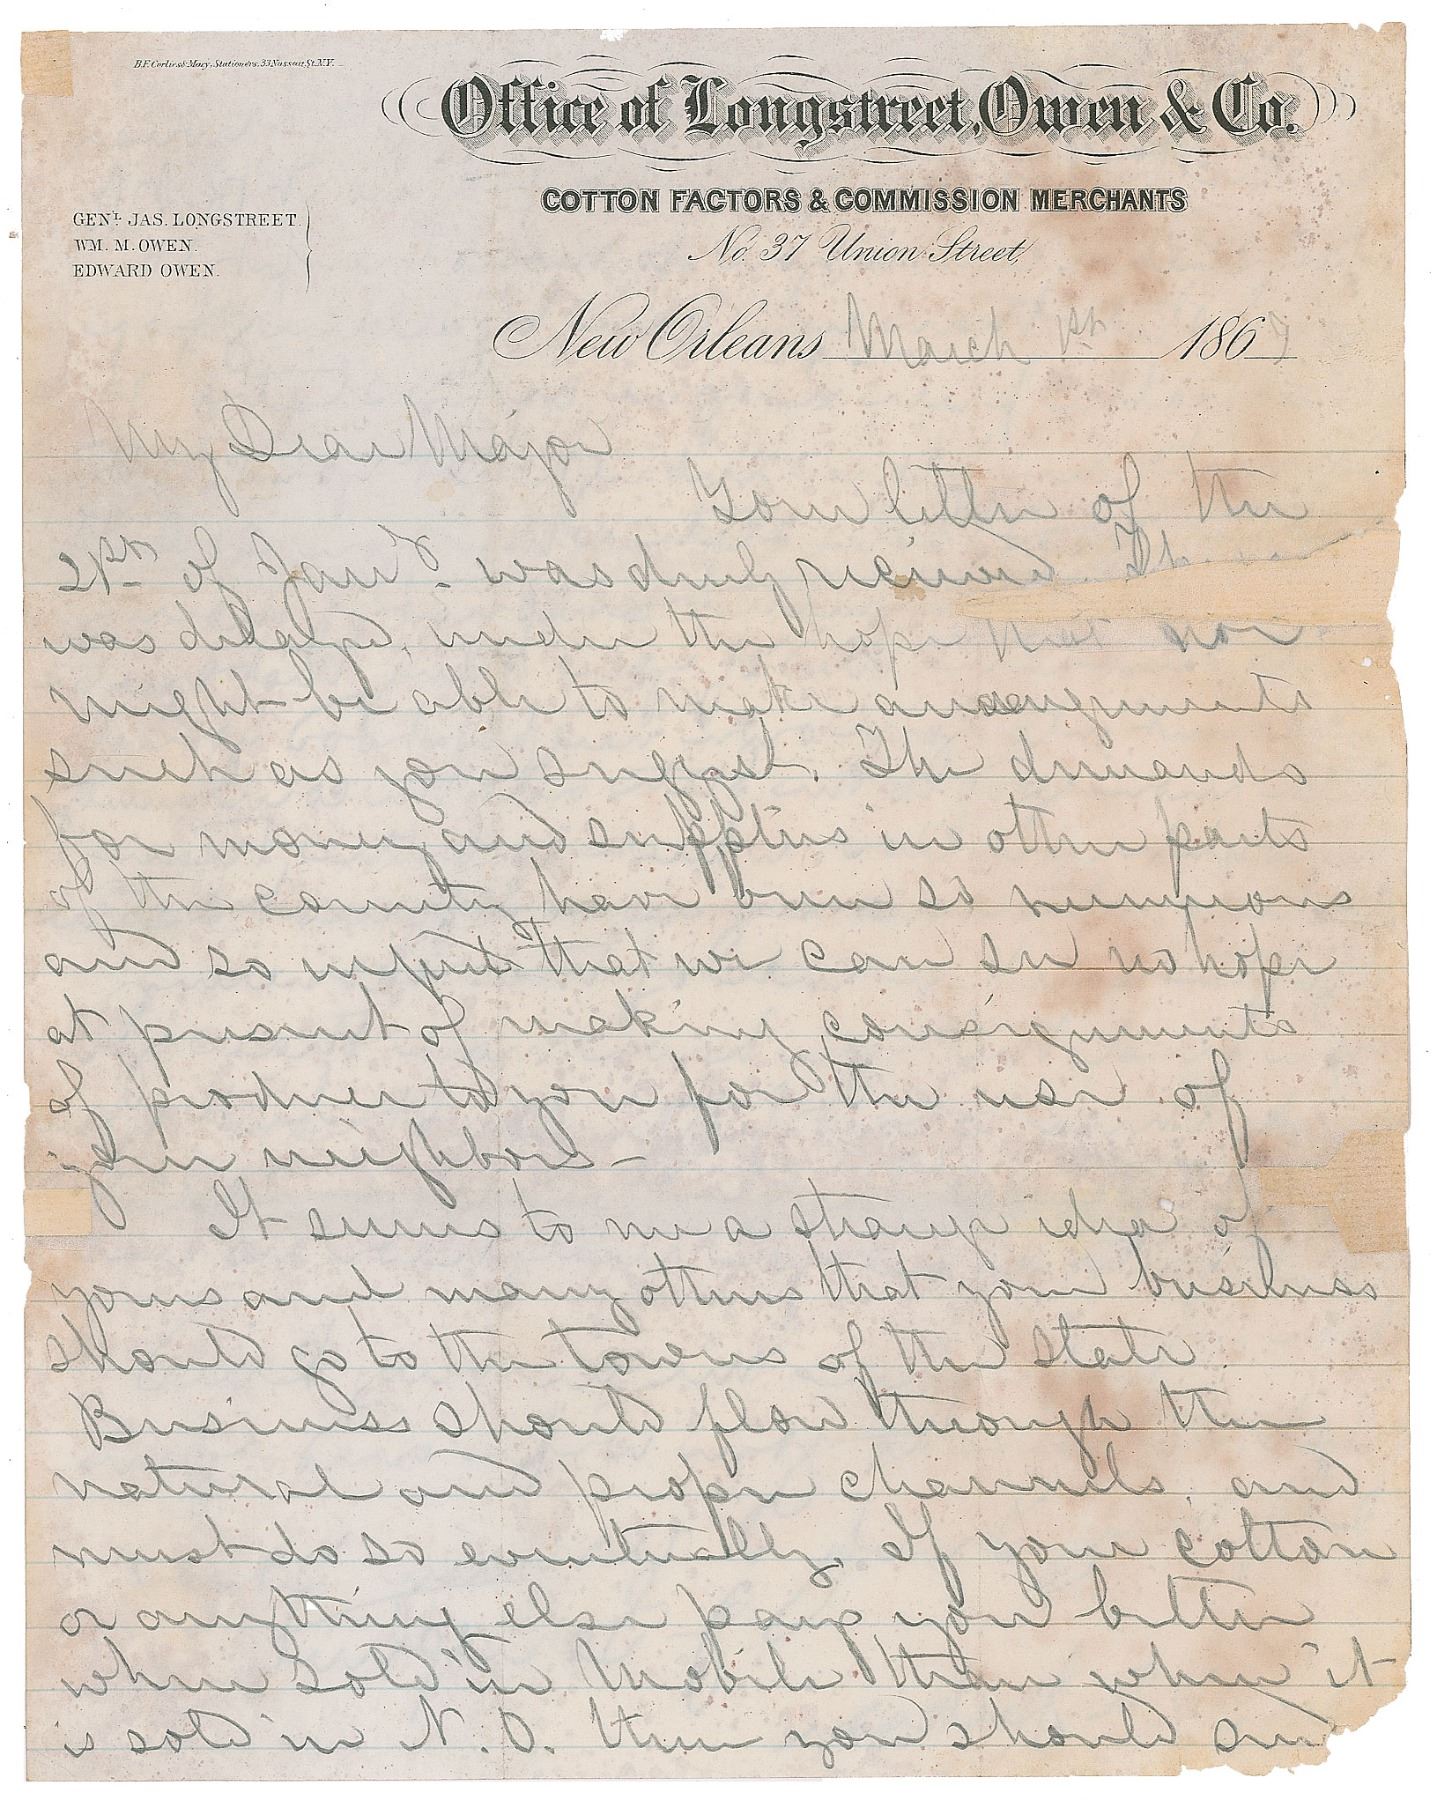 B.F. Corlies & Macy, Stationers, 33 Nassau St. N.Y.
Office of Longstreet, Owen & Co.
COTTON FACTORS & COMMISSION MERCHANTS
GENL. JAS. LONGSTREET.
WM. M. OWEN.
EDWARD OWEN.
No. 37 Union Street,
New Orleans March 1st 1867
My Dear Major
Your letter of the
21st of Jany. was duly received. The
was delayed, under the hope that we
might be able to make arrangements
such as you suggest. The demands
for money and supplies in other parts
of the country have been so numerous
and so urgent that we can see no hope
at present of making consignments
of produce to you for the use of
your neighbors—
It seems to me a strange idea of
yours and many others that your business
should go to the towns of the State.
Business should flow through the
natural and proper channels, and
must do so eventually. If your cotton
or anything else pays you better
when sold in Mobile than when it
is sold in N.O. then you should send